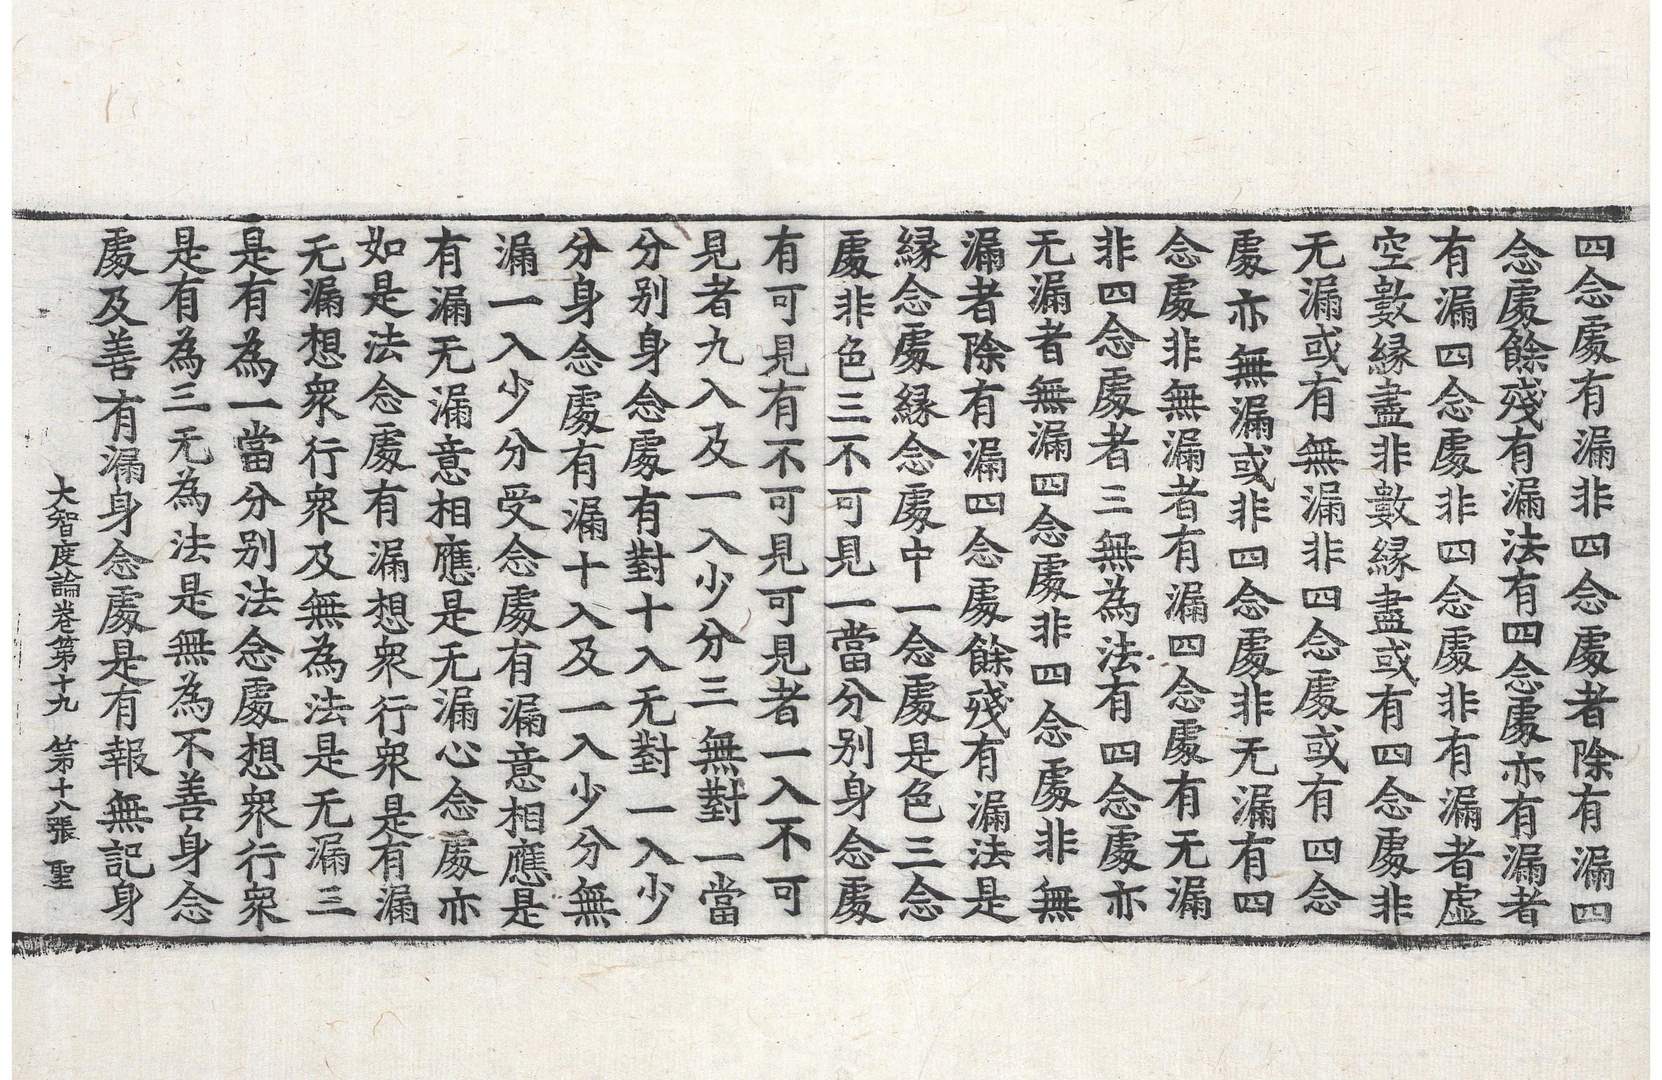 四念處有漏非四念處者除有漏四
念處餘殘有漏法有四念處亦有漏者
有漏四念處非四念處非有漏者虛
空數緣盡非數緣盡或有四念處非
无漏或有無漏非四念處或有四念
處亦無漏或非四念處非无漏有四
念處非無漏者有漏四念處有无漏
非四念處者三無為法有四念處亦
无漏者無漏四念處非四念處非無
漏者除有漏四念處餘殘有漏法是
緣念處緣念處中一念處是色三念
處非色三不可見一當分別身念處
有可見有不可見可見者一入不可
見者九入及一入少分三無對一當
分別身念處有對十入无對一入少
分身念處有漏十入及一入少分無
漏一入少分受念處有漏意相應是
有漏无漏意相應是无漏心念處亦
如是法念處有漏想眾行眾是有漏
无漏想眾行眾及無為法是无漏三
是有為一當分別法念處想眾行眾
是有為三无為法是無為不善身念
處及善有漏身念處是有報無記身
大智度論卷第十九 第十八張 聖